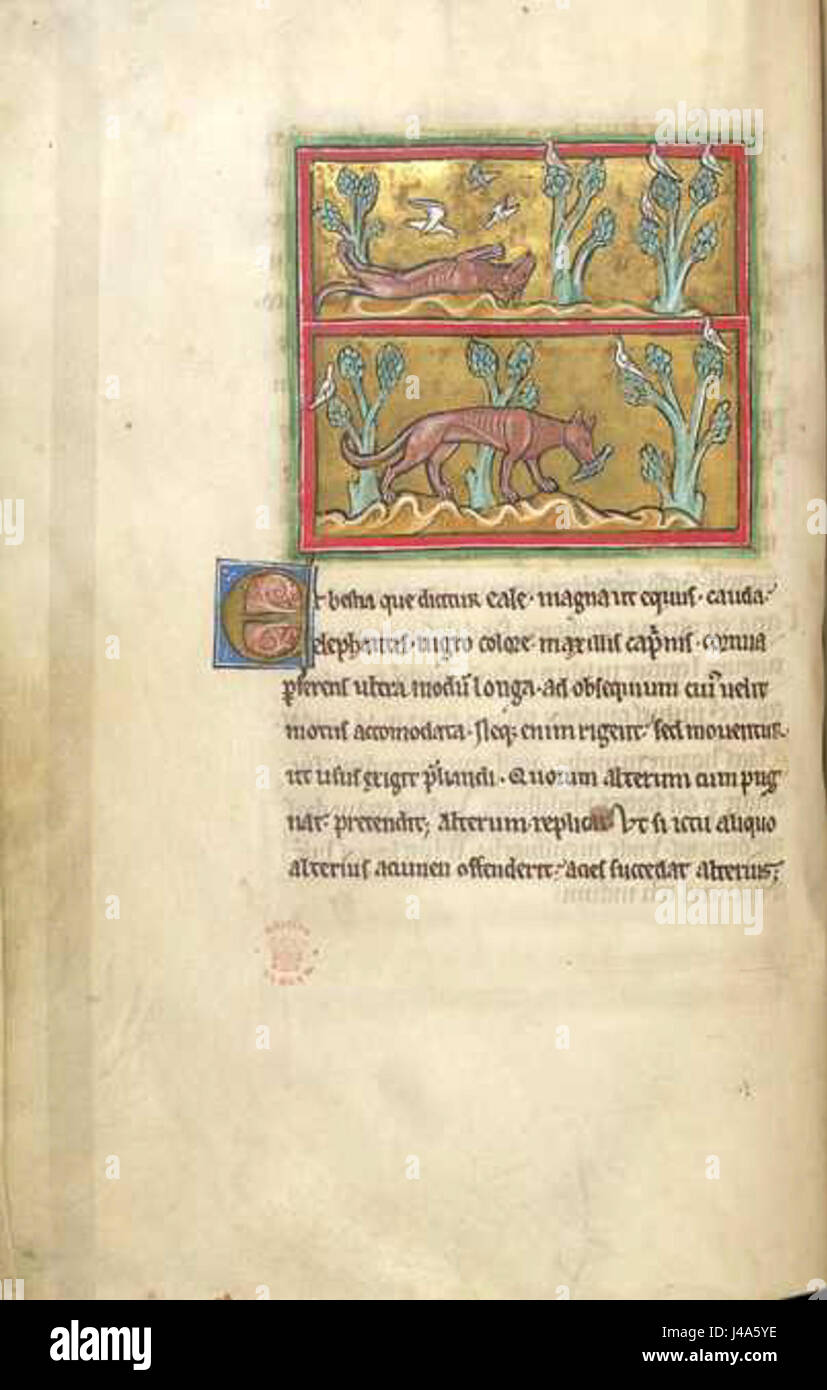 Est bestia que dicitur eale· magna ut equus· cauda
elephantis· nigro colore· maxillis cap̄nis· cornua
p̄ferens ultra modū longa· ad obsequium cui᷒ uelit
motus accomodata· Neq; enim rigent· sed mouentur
ut usus exigit p̄liandi· Quorum alterum cum pug
nat· pretendit; alterum replicat Ut si ictu aliquo
alterius acumen offenderit· acies succedat alterius;
alamy stock photo
a alamy J4A5YE
www.alamy.com